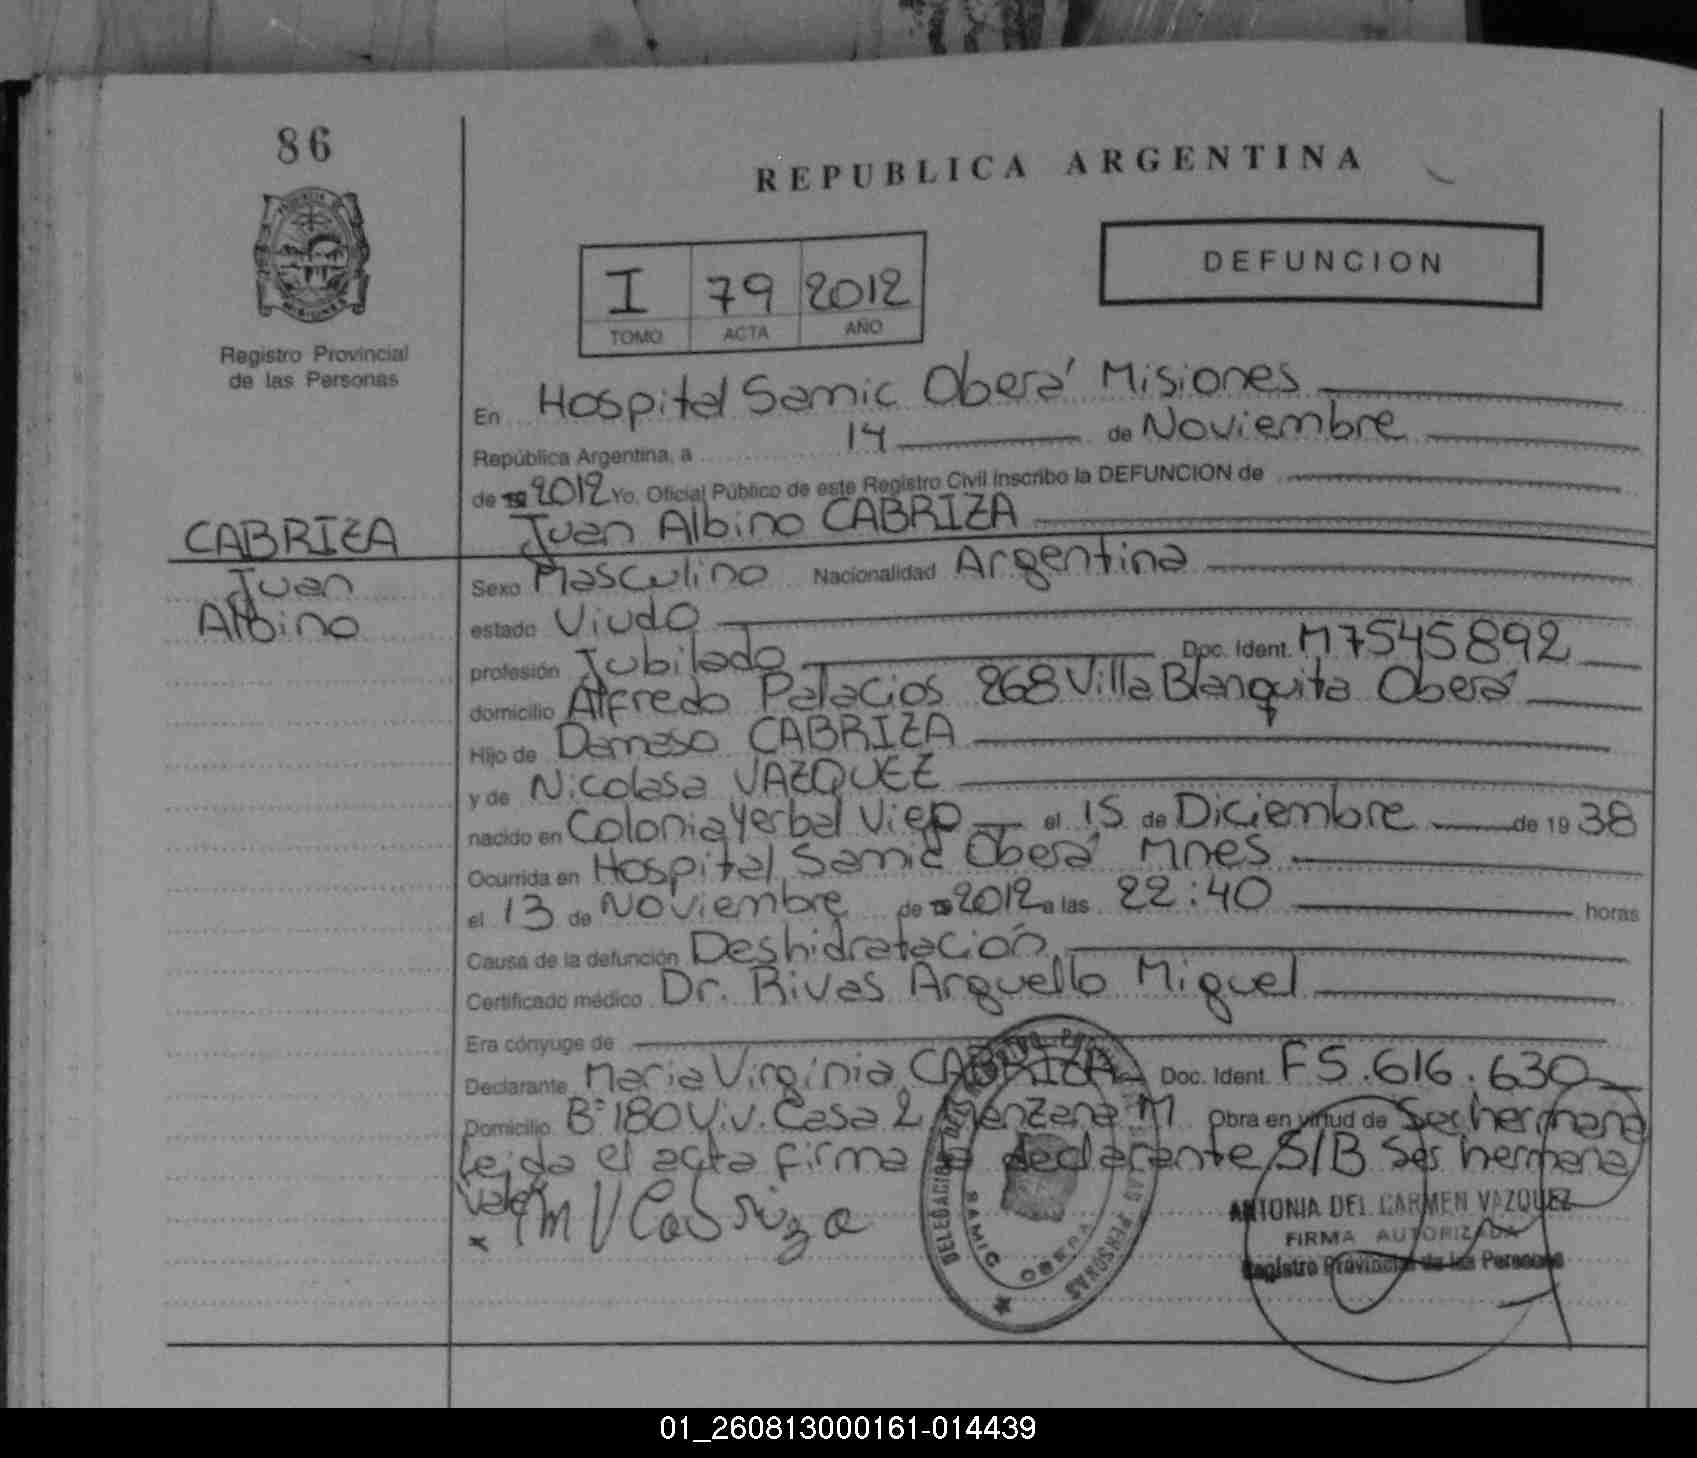 86
REPUBLICA ARGENTINA
DEFUNCION
I 79 2012
TOMO ACTA AÑO
MISIONES
Registro Provincial
de las Personas
En Hospital Samic Oberá Misiones
República Argentina, a 14 de Noviembre
de 2012 Yo, Oficial Público de este Registro Civil inscribo la DEFUNCION de
Juan Albino CABRIZA
CABRIZA
Juan
Albino
Sexo Masculino Nacionalidad Argentina
estado Viudo
profesión Jubilado Doc. Ident. M7545892
domicilio Alfredo Palacios 268 Villa Blanquita Oberá
Hijo de Damaso CABRIZA
y de Nicolasa VAZQUEZ
nacido en Colonia Yerbal Viejo el 15 de Diciembre de 1938
Ocurrida en Hospital Samic Oberá Mnes
el 13 de Noviembre de 2012 a las 22:40 horas
Causa de la defunción Deshidratación
Certificado médico Dr. Rivas Arguello Miguel
Era cónyuge de
Declarante Maria Virginia CABRIZA Doc. Ident. F5.616.630
Domicilio B° 180 Viv. Casa 2 Manzana M Obra en virtud de Ser hermana
Leida el acta firma la declarante S/B Ser hermana
Vale
x M V Cabriza
DELEGACION PERSONAS
SAMIC OBERA
ANTONIA DEL CARMEN VAZQUEZ
FIRMA AUTORIZADA
Registro Provincial de las Personas
01_260813000161-014439